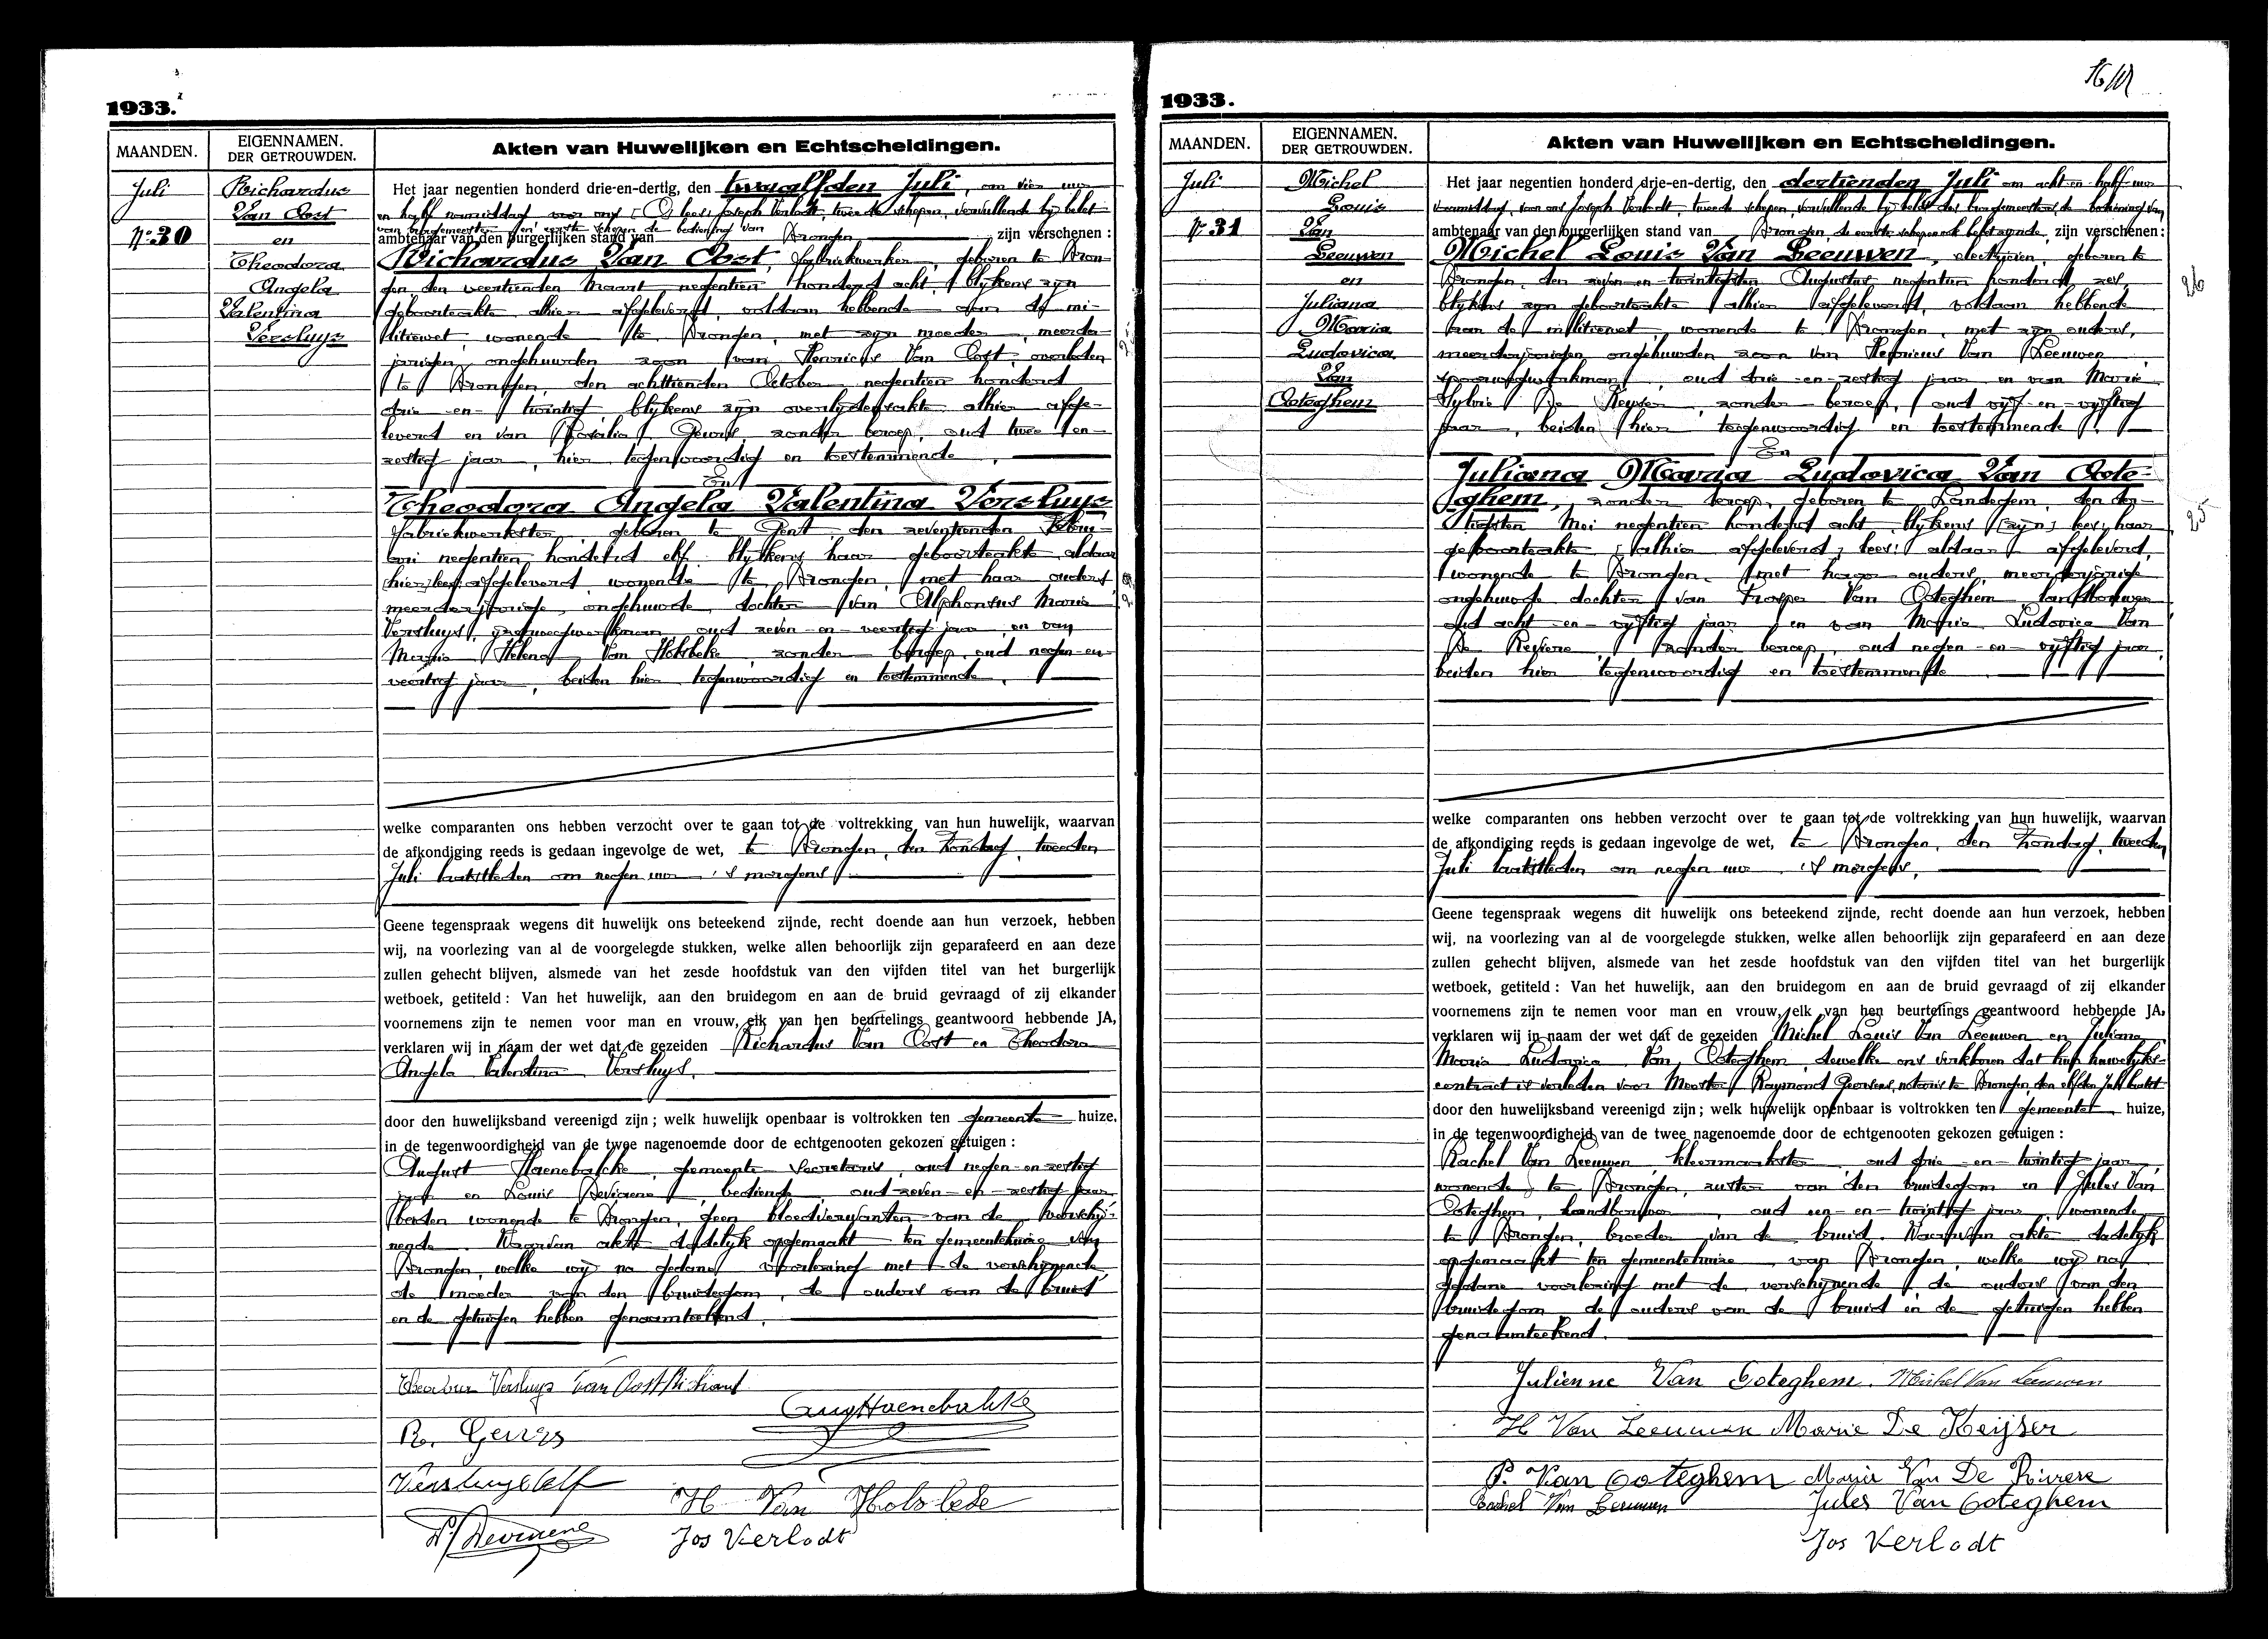 1933.
MAANDEN.
EIGENNAMEN.
DER GETROUWDEN.
Akten van Huwelijken en Echtscheidingen.
Juli
Nr 30
Richardus
Van Oost
en
Theodora
Angela
Valentina
Versluys
Het jaar negentien honderd drie-en-dertig, den twaalfden Juli, om vier uur
en half namiddag, voor ons [O] lees: Joseph Verlodt, tweede schepen, vervullende bij belet
van burgemeester en eerste schepen de bediening van
ambtenaar van den burgerlijken stand van Drongen zijn verschenen :
Richardus Van Oost, fabriekwerker, geboren te Dron-
gen den veertienden Maart negentien honderd acht, blijkens zijn
geboorteakte alhier afgeleverd, voldaan hebbende aan de mi-
litiewet, wonende te Drongen, met zijn moeder, meerder-
jarigen ongehuwden zoon van Henricus Van Oost, overleden
te Drongen, den achttienden October negentien honderd
drie-en-twintig, blijkens zijn overlijdensakte alhier afge-
leverd en van Rosalia Geurs, zonder beroep, oud twee en
zestig jaar, hier tegenwoordig en toestemmende,
En
Theodora Angela Valentina Versluys
fabriekwerkster, geboren te Gent den zeventienden
negentien honderd elf, blijkens haar geboorteakte aldaar
[hier] lees: afgeleverd wonende te Drongen, met haar ouders
meerderjarige, ongehuwde dochter van Alphonsus Maria
Versluys, oud zeven-en-veertig jaar, en van
Maria Helena Van Holsbeke, zonder beroep, oud negen-en-
veertig jaar, beiden hier tegenwoordig en toestemmende,
welke comparanten ons hebben verzocht over te gaan tot de voltrekking van hun huwelijk, waarvan
de afkondiging reeds is gedaan ingevolge de wet, te Drongen, den Zondag, tweeden
Juli laatstleden om negen uur 's morgens,
Geene tegenspraak wegens dit huwelijk ons beteekend zijnde, recht doende aan hun verzoek, hebben
wij, na voorlezing van al de voorgelegde stukken, welke allen behoorlijk zijn geparafeerd en aan deze
zullen gehecht blijven, alsmede van het zesde hoofdstuk van den vijfden titel van het burgerlijk
wetboek, getiteld : Van het huwelijk, aan den bruidegom en aan de bruid gevraagd of zij elkander
voornemens zijn te nemen voor man en vrouw, elk van hen beurtelings geantwoord hebbende JA,
verklaren wij in naam der wet dat de gezeiden Richardus Van Oost en Theodora
Angela Valentina Versluys,
door den huwelijksband vereenigd zijn ; welk huwelijk openbaar is voltrokken ten gemeente huize,
in de tegenwoordigheid van de twee nagenoemde door de echtgenooten gekozen getuigen :
August Haenebalcke, gemeente secretaris, oud negen-en-zestig
jaar en Louis Deviaene, bediende, oud zeven-en-zestig jaar,
beiden wonende te Drongen, geen bloedverwanten van de verschij-
nende. Waarvan akte dadelijk opgemaakt ten gemeentehuize van
Drongen, welke wij na gedane voorlezing met de verschijnende
de moeder van den bruidegom, de ouders van de bruid
en de getuigen hebben genaamteekend.
Theodora Versluys Van Oost Richard
Aug Haenebalcke
R. Geurs
Versluys Alf
H Van Holsbeke
Jos Verlodt
1933.
MAANDEN.
EIGENNAMEN.
DER GETROUWDEN.
Akten van Huwelijken en Echtscheidingen.
Juli
Nr 31
Michel
Louis
Van
Leeuwen
en
Juliana
Maria
Ludovica
Van
Ooteghem
26
25
Het jaar negentien honderd drie-en-dertig, den dertienden Juli om acht en half uur
voormiddag, voor ons Joseph Verlodt, tweede schepen, vervullende bij belet des burgemeesters, de bediening van
ambtenaar van den burgerlijken stand van Drongen, de eerste schepen ook belet zijnde, zijn verschenen :
Michel Louis Van Leeuwen, electricien, geboren te
Drongen, den zeven-en-twintigsten Augustus negentien honderd zes,
blijkens zijn geboorteakte alhier afgeleverd, voldaan hebbende
aan de militiewet, wonende te Drongen, met zijn ouders,
meerderjarigen ongehuwden zoon van Henricus Van Leeuwen
oud drie-en-zestig jaar en van Marie
Sylvie De Keyser, zonder beroep, oud vijf-en-vijftig
jaar, beiden hier tegenwoordig en toestemmende,
En
Juliana Maria Ludovica Van Oote-
ghem, zonder beroep, geboren te Landegem den der-
tigsten Mei negentien honderd acht blijkens [zijn] lees: haar
geboorteakte [alhier afgeleverd] lees: aldaar afgeleverd,
wonende te Drongen, met haar ouders, meerderjarige
ongehuwde dochter van Prosper Van Ooteghem landbouwer
oud acht-en-vijftig jaar en van Maria Ludovica Van
De Reviere, zonder beroep, oud negen-en-vijftig jaar,
beiden hier tegenwoordig en toestemmende
welke comparanten ons hebben verzocht over te gaan tot de voltrekking van hun huwelijk, waarvan
de afkondiging reeds is gedaan ingevolge de wet, te Drongen, den Zondag, tweeden
Juli laatstleden om negen uur 's morgens,
Geene tegenspraak wegens dit huwelijk ons beteekend zijnde, recht doende aan hun verzoek, hebben
wij, na voorlezing van al de voorgelegde stukken, welke allen behoorlijk zijn geparafeerd en aan deze
zullen gehecht blijven, alsmede van het zesde hoofdstuk van den vijfden titel van het burgerlijk
wetboek, getiteld : Van het huwelijk, aan den bruidegom en aan de bruid gevraagd of zij elkander
voornemens zijn te nemen voor man en vrouw, elk van hen beurtelings geantwoord hebbende JA,
verklaren wij in naam der wet dat de gezeiden Michel Louis Van Leeuwen en Juliana
Maria Ludovica Van Ooteghem, dewelke ons verklaren dat hun huwelijks-
contract is verleden voor Meester Raymond Goossens, notaris te Drongen, den elfden Juli laatst
door den huwelijksband vereenigd zijn ; welk huwelijk openbaar is voltrokken ten gemeente huize,
in de tegenwoordigheid van de twee nagenoemde door de echtgenooten gekozen getuigen :
Rachel Van Leeuwen, kleermaakster, oud drie-en-twintig jaar,
wonende te Drongen, zuster van den bruidegom en Jules Van
Ooteghem, landbouwer, oud een-en-twintig jaar, wonende
te Drongen, broeder van de bruid. Waarvan akte dadelijk
opgemaakt ten gemeentehuize van Drongen, welke wij na
gedane voorlezing met de verschijnende, de ouders van den
bruidegom, de ouders van de bruid en de getuigen hebben
genaamteekend.
Julienne Van Ooteghem. Michel Van Leeuwen
H Van Leeuwen Marie De Keijser
P. Van Ooteghem Maria Van De Rivière
Rachel Van Leeuwen Jules Van Ooteghem
Jos Verlodt